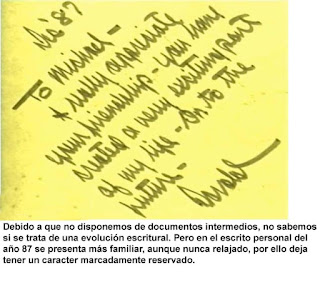 Dis 87
To michael -
I really appreciate
your friendship - you have
created a very exciting part
of my life - On to the
future -
Donald
Debido a que no disponemos de documentos intermedios, no sabemos
si se trata de una evolución escritural. Pero en el escrito personal del
año 87 se presenta más familiar, aunque nunca relajado, por ello deja
tener un caracter marcadamente reservado.